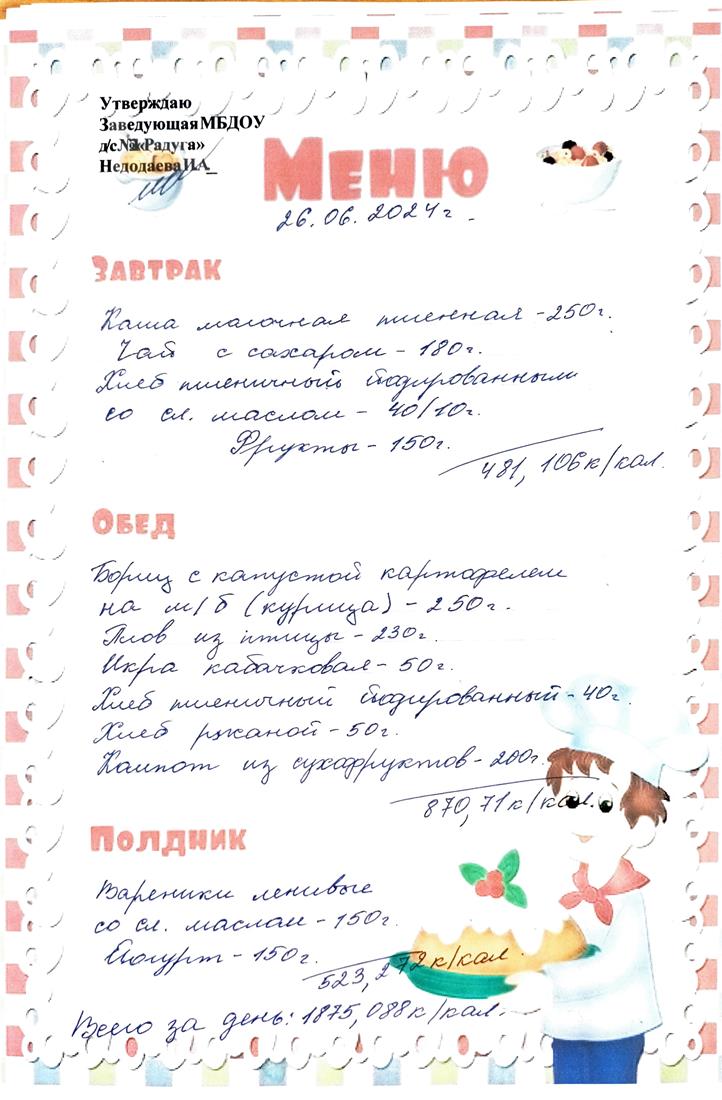 Утверждаю
Заведующая МБДОУ
д/с «Радуга»
Недодаева И.А_
Меню
26.06.2024г.
Завтрак
Каша молочная пшенная - 250г.
Чай с сахаром - 180г.
Хлеб пшеничный йодированный
со сл. маслом - 40/10г.
Фрукты - 150г.
481,106к/кал.
Обед
Борщ с капустой картофелем
на м/б (курица) - 250г.
Плов из птицы - 230г.
Икра кабачковая - 50г.
Хлеб пшеничный йодированный - 40г.
Хлеб ржаной - 50г.
Компот из сухофруктов - 200г.
870,71к/кал.
Полдник
Вареники ленивые
со сл. маслом - 150г.
Йогурт - 150г.
523,272к/кал.
Всего за день: 1875,088к/кал.